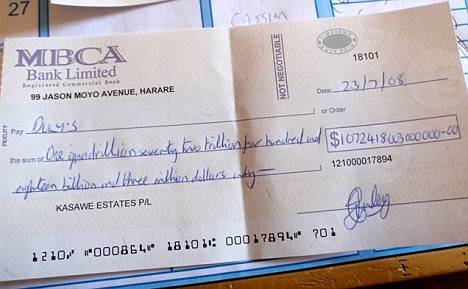 27
CASSIM
MBCA
Bank Limited
Registered Commercial Bank
99 JASON MOYO AVENUE, HARARE
NOT NEGOTIABLE
18101
Date: 23/7/08
Pay Duly's or Order
the sum of One quadrillion seventy two trillion four hundred and
$1072418003000000-00
eighteen billion and three million dollars only—
121000017894
KASAWE ESTATES P/L
1210 000864 18101 00017894 701